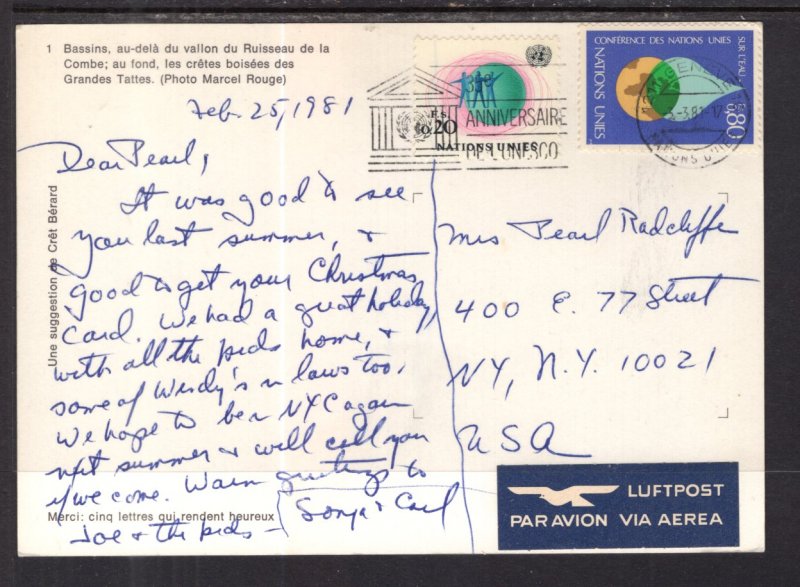 1 Bassins, au-delà du vallon du Ruisseau de la
Combe; au fond, les crêtes boisées des
Grandes Tattes. (Photo Marcel Rouge)
Feb. 25, 1981
Dear Pearl,
It was good to see
you last summer, &
good to get your Christmas
Card. We had a great holiday,
with all the kids home, &
some of Wendy's in laws too.
We hope to be in NYC again
next summer & will call you
if we come. Warm greetings to
Joe & the kids – Sonja & Carl
Une suggestion de Crêt Bérard
Merci: cinq lettres qui rendent heureux
35e
ANNIVERSAIRE
DE L'UNESCO
F.S.
0,20
NATIONS UNIES
CONFÉRENCE DES NATIONS UNIES
SUR L'EAU
NATIONS UNIES
0,80
-3.81-17
NATIONS UNIES
Mrs Pearl Radcliffe
400 E. 77 Street
NY, N.Y. 10021
USA
LUFTPOST
PAR AVION VIA AEREA